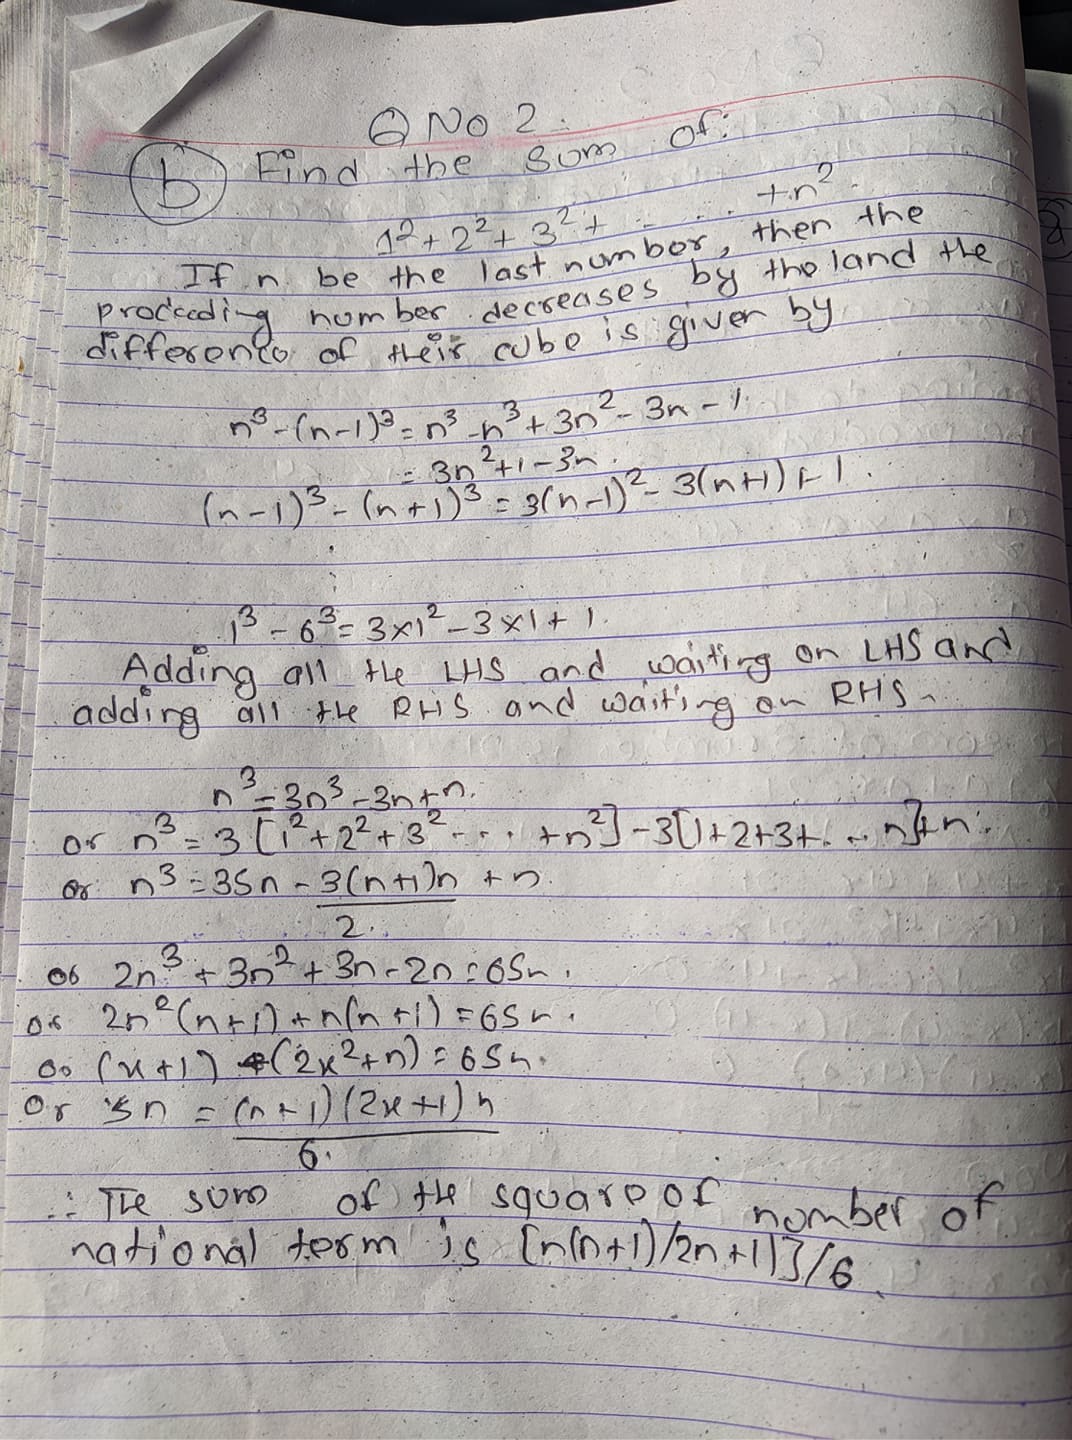 Q No 2.
b Find the sum of:
1² + 2² + 3² + - ... + n².
If n be the last number, then the
number decreases by the land the
difference of their cube is given by
n³ - (n-1)³ = n³ - n³ + 3n² - 3n - 1.
= 3n² + 1 - 3n.
(n-1)³ - (n+1)³ = 3(n-1)² - 3(n+1) + 1.
1³ - 6³ = 3×1² - 3×1 + 1.
Adding all the LHS and waiting on LHS and
adding all the RHS and waiting on RHS.
n³ = 3n³ - 3n + n.
or n³ = 3 [1² + 2² + 3² ... + n²] - 3[1+2+3+... n] + n.
or n³ = 3Sn - 3(n+1)n + n.
2.
or 2n³ + 3n² + 3n - 2n = 6Sn.
or 2n²(n+1) + n(n+1) = 6Sn.
or (x+1) (2x²+n) = 6Sn.
or Sn = (n+1)(2x+1)n
6.
∴ The sum of the square of number of
national term is [n(n+1)/2n+1)]/6